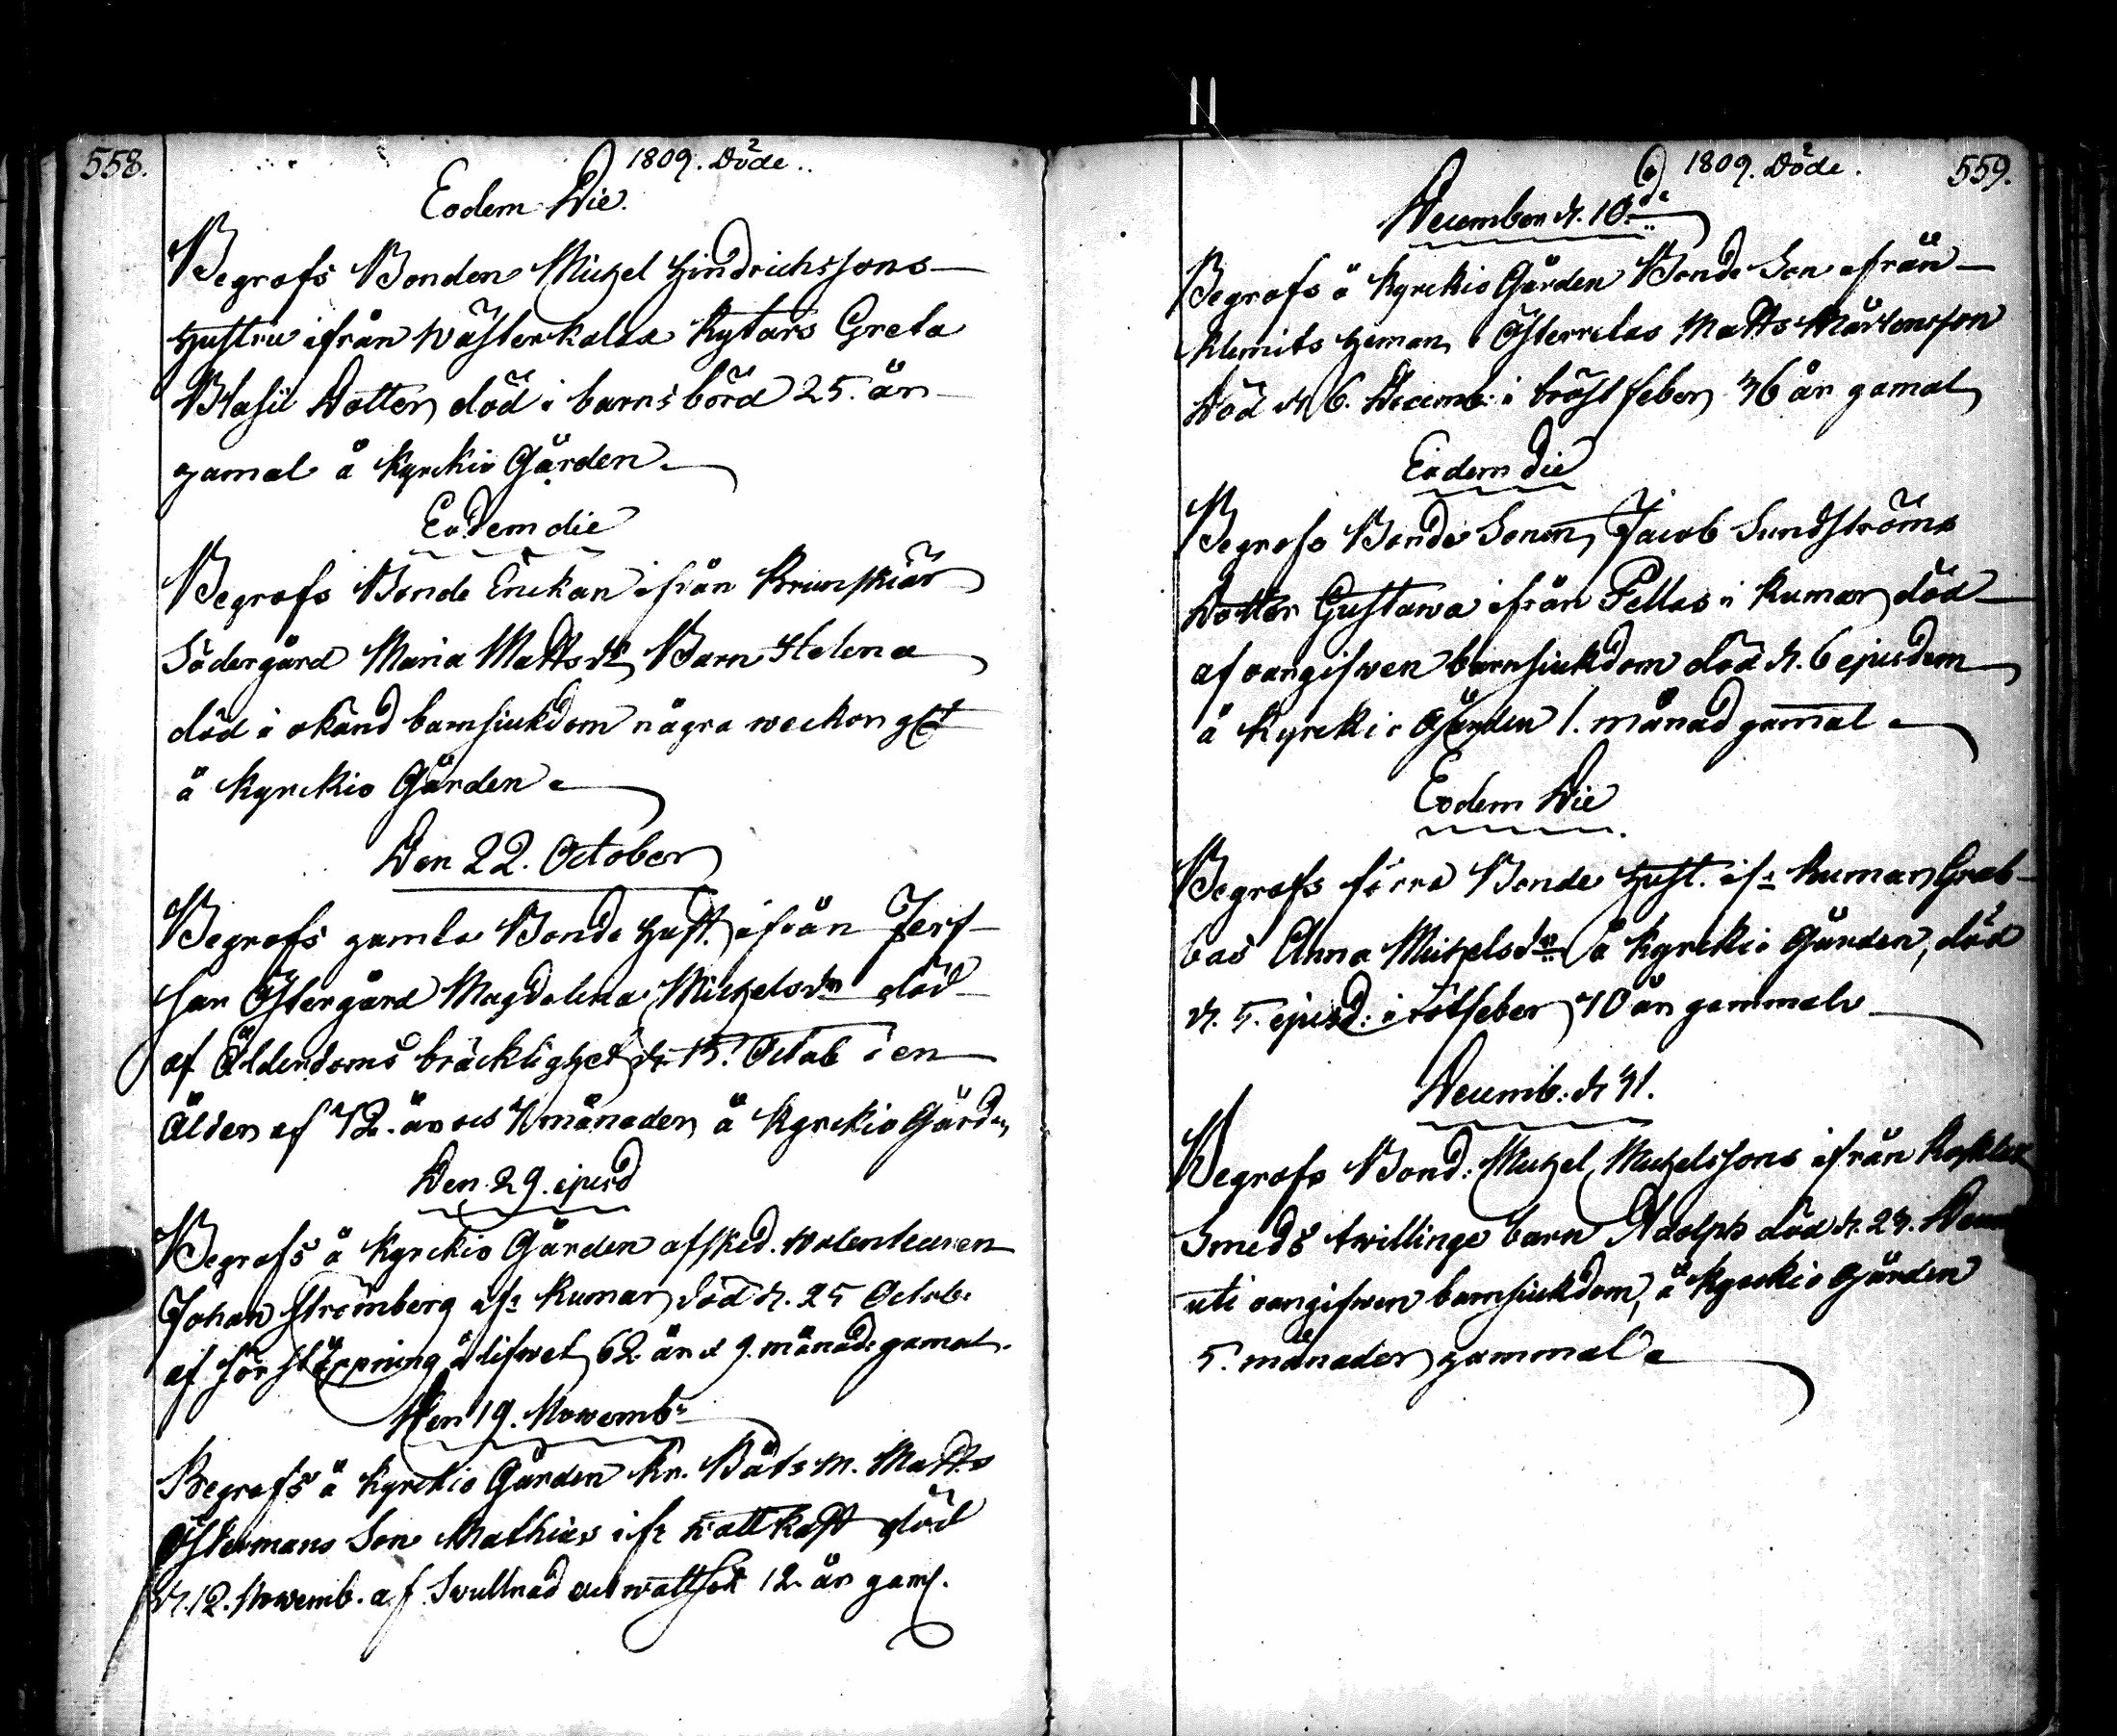 558.
1809. Döde..
Eodem Die.
Begrofs Bonden Michel Hindrichssons
Hustru ifrån Wästerkalax Kytars Greta
Blasii Dotter död i barnsbörd 25. år
gamal å Kyrckio Gården.
Eodem die
Begrofs Bonde Enckan ifrån
Södergård Maria Mattsdr Barn Helena
död i okänd barnsiukdom några weckor glt
å Kyrckio Gården
Den 22. October
Begrofs gamla Bonde Hust. ifrån Jerf-
Östergård Magdalena Michelsdr död
af Ålderdoms bräcklighet Octob i en
Ålder af 72. år månader å Kyrckio Gården
Den 29. ejusd
Begrofs å Kyrckio Gården afsked.
Johan Strömberg ifr Rumar död d. 25 Octob:
af förstäppning å lifwet 62 år & 9. månad: gamal.
Den 19. Nowembr
Begrofs å Kyrckio Gården Kr. Båtsm. Matts
Östermans Son Mathias ifr död
d. 12. Nowemb. af Swullnad och wattsot 12. år gaml.
1809. Döde.
559.
December d. 10de
Begrofs å Kyrckio Gården Bonde Son ifrån
Klemits Heman Matts Mårtensson
Död d. 6. Decemb: i bröstfeber 36 år gamal
Eodem die
Begrofs Bonde Sonen Jacob Sundströms
Dotter Gustawa ifrån Pellas i Rumar död
af oangifwen barnsiukdom död d. 6 ejusdem
å Kyrckio Gården 1. månad gamal
Eodem Die
Begrofs förra Bonde Hust. ifr Rumar Grab-
bas Anna Michelsdr å Kyrckio Gården, död
d. 5. ejusd: i rötfeber 70 år gammal
Decemb: d 31.
Begrofs Bond: Michel Michelssons ifrån
Smeds twillinge barn Adolph död d. 23.
uti oangifwen barnsiukdom, å Kyrckio Gården
5. månader gammal